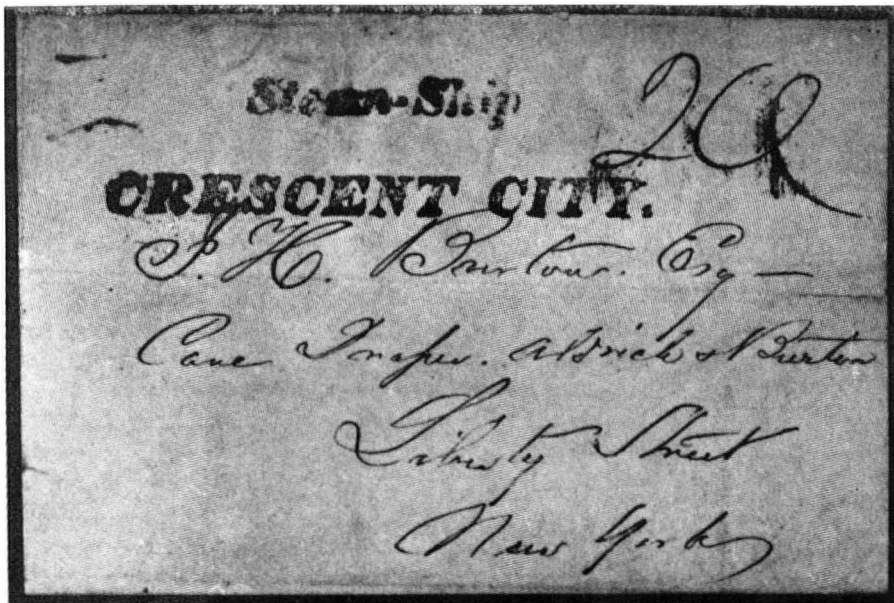 Steam-Ship
20
CRESCENT CITY.
J. H. Burton. Esq —
Care Draper. Aldrich & Burton
Liberty Street
New York